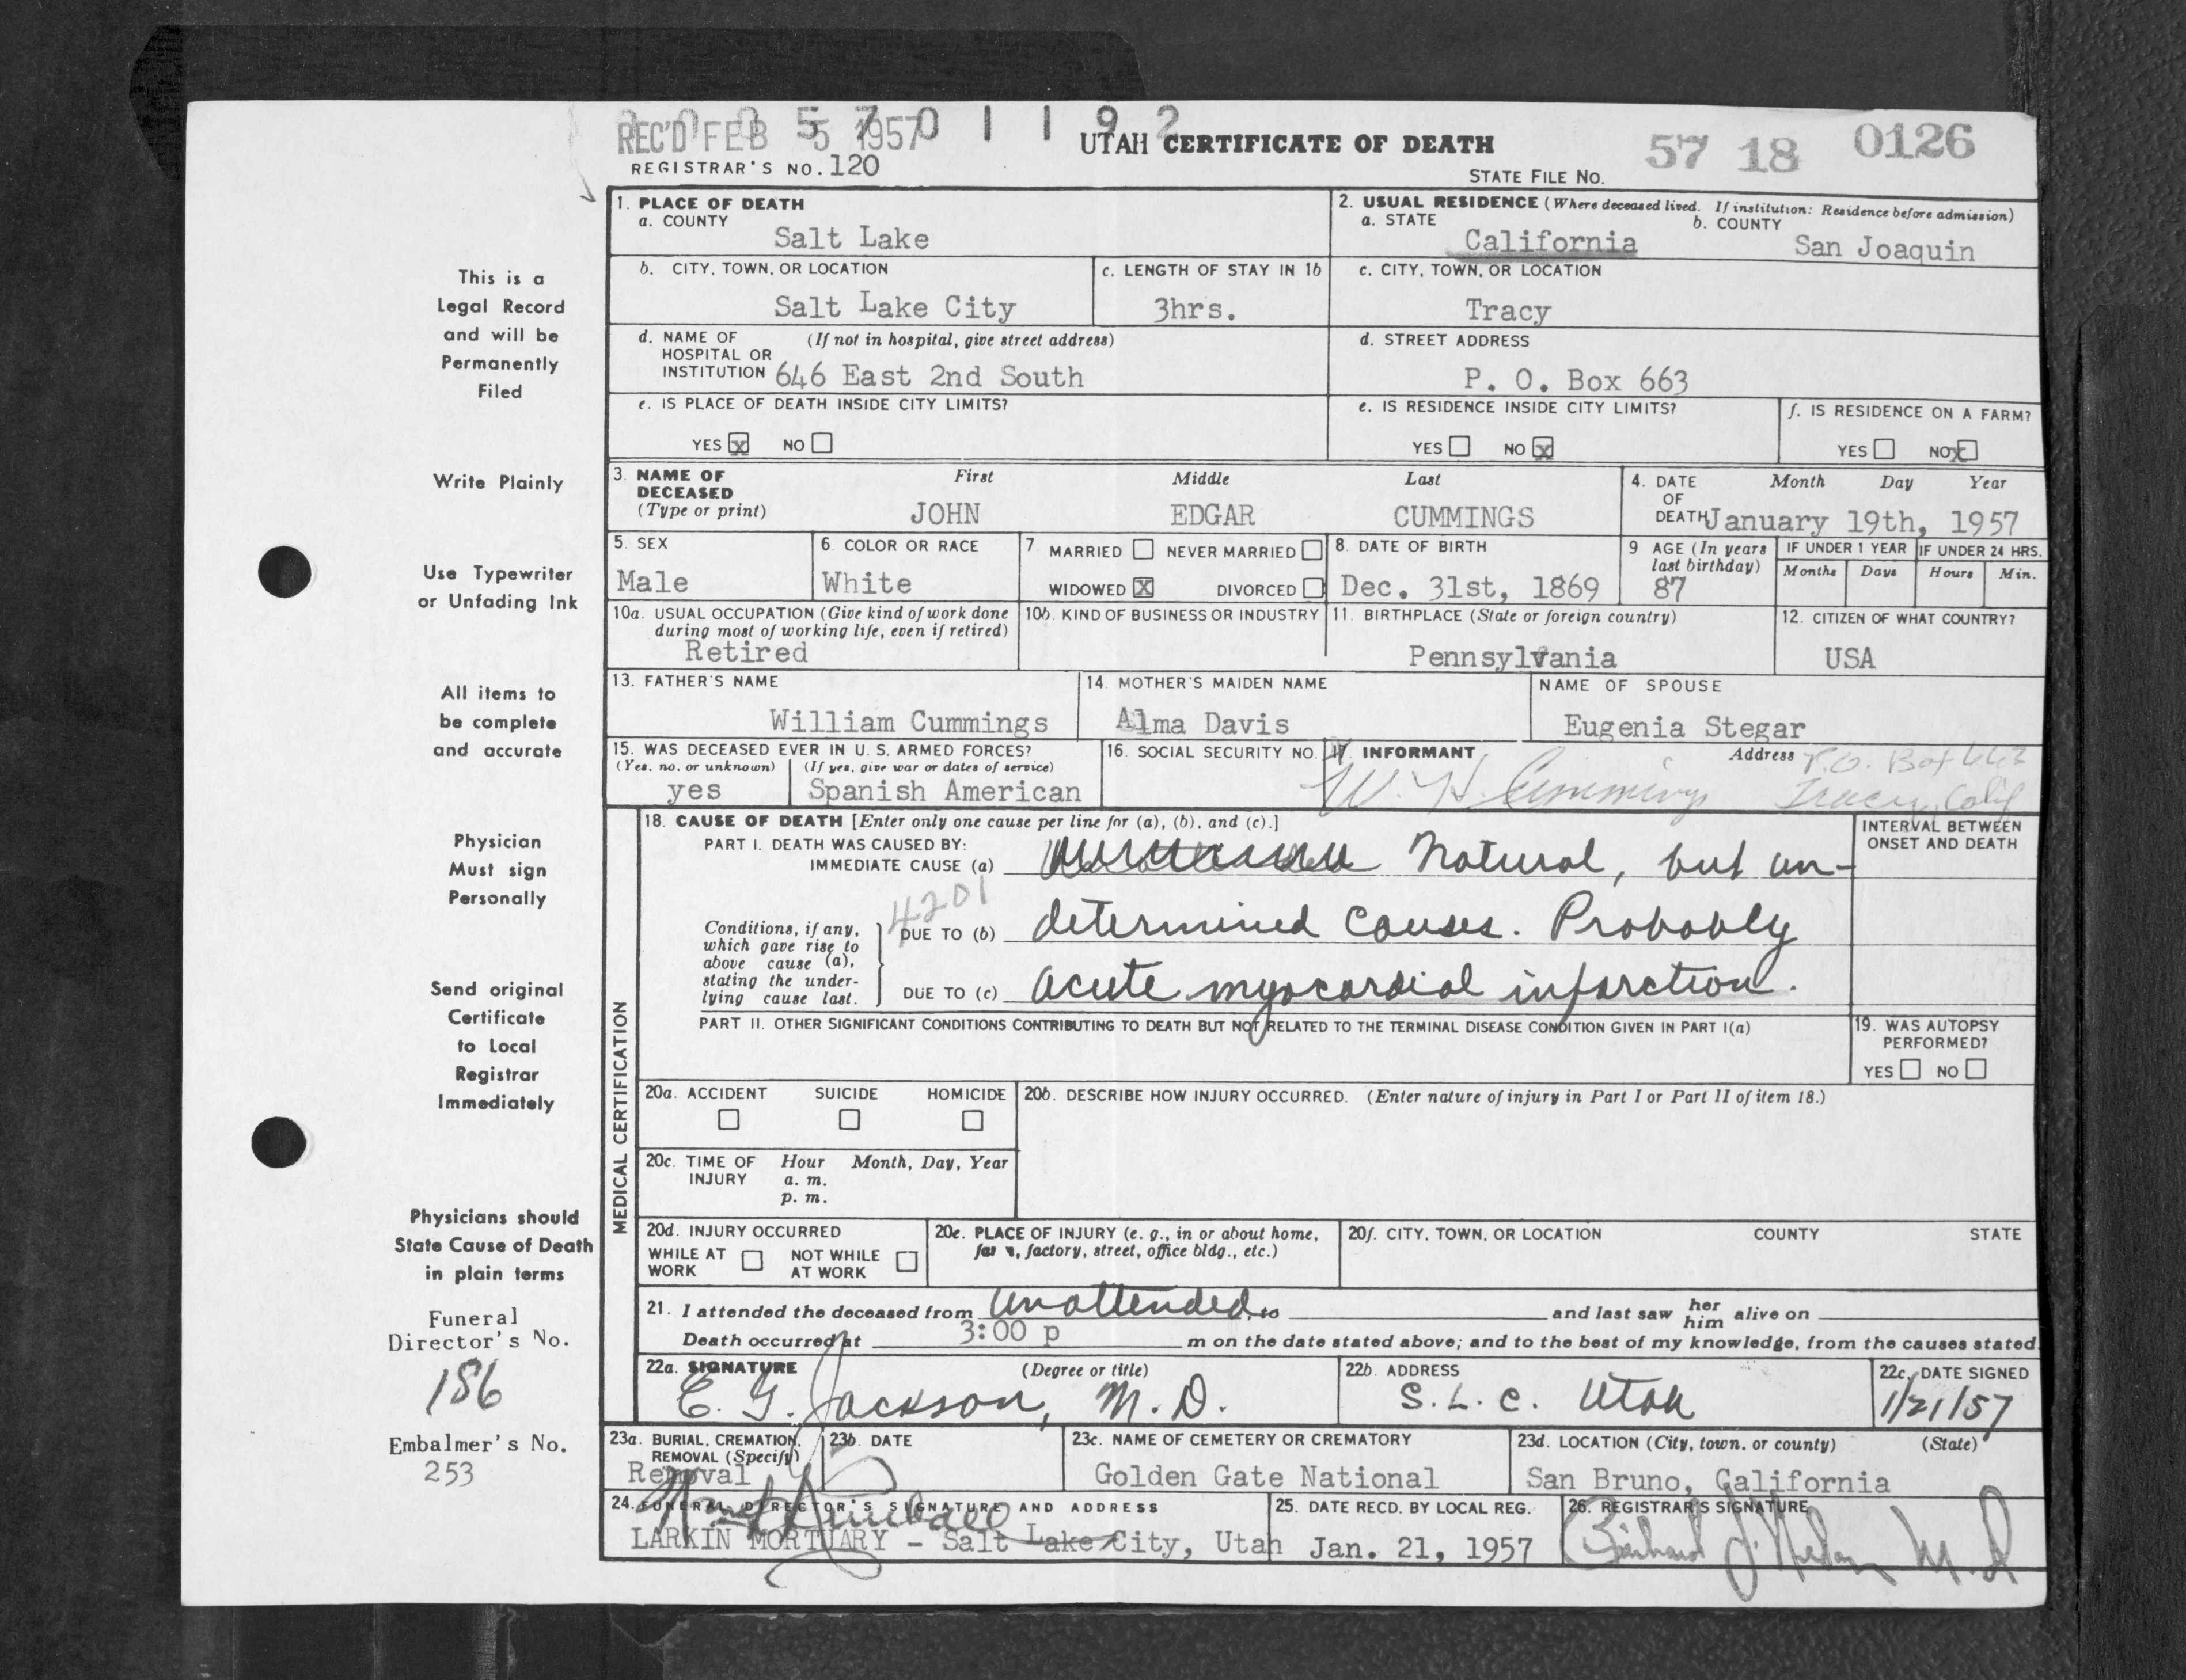 REC'D FEB 5 1957
5 7 0 1 1 9 2
UTAH CERTIFICATE OF DEATH
57 18 0126
REGISTRAR'S NO. 120
STATE FILE NO.
1. PLACE OF DEATH
a. COUNTY
Salt Lake
2. USUAL RESIDENCE (Where deceased lived. If institution: Residence before admission)
a. STATE
California
b. COUNTY
San Joaquin
b. CITY, TOWN, OR LOCATION
Salt Lake City
c. LENGTH OF STAY IN 1b
3hrs.
c. CITY, TOWN, OR LOCATION
Tracy
d. NAME OF (If not in hospital, give street address)
HOSPITAL OR
INSTITUTION 646 East 2nd South
d. STREET ADDRESS
P. O. Box 663
e. IS PLACE OF DEATH INSIDE CITY LIMITS?
YES X NO
e. IS RESIDENCE INSIDE CITY LIMITS?
YES NO X
f. IS RESIDENCE ON A FARM?
YES NO X
3. NAME OF
DECEASED
(Type or print)
First Middle Last
JOHN EDGAR CUMMINGS
4. DATE
OF
DEATH
Month Day Year
January 19th, 1957
5. SEX
Male
6. COLOR OR RACE
White
7. MARRIED NEVER MARRIED
WIDOWED X DIVORCED
8. DATE OF BIRTH
Dec. 31st, 1869
9 AGE (In years
last birthday)
87
IF UNDER 1 YEAR
Months Days
IF UNDER 24 HRS.
Hours Min.
10a. USUAL OCCUPATION (Give kind of work done
during most of working life, even if retired)
Retired
10b. KIND OF BUSINESS OR INDUSTRY
11. BIRTHPLACE (State or foreign country)
Pennsylvania
12. CITIZEN OF WHAT COUNTRY?
USA
13. FATHER'S NAME
William Cummings
14. MOTHER'S MAIDEN NAME
Alma Davis
NAME OF SPOUSE
Eugenia Stegar
15. WAS DECEASED EVER IN U. S. ARMED FORCES?
(Yes, no, or unknown) (If yes, give war or dates of service)
yes Spanish American
16. SOCIAL SECURITY NO.
17. INFORMANT
W. H. Cummings
Address P.O. Box 663
Tracy, Calif
18. CAUSE OF DEATH [Enter only one cause per line for (a), (b), and (c).]
PART I. DEATH WAS CAUSED BY:
IMMEDIATE CAUSE (a) Natural, but un-
4201
Conditions, if any,
which gave rise to
above cause (a),
stating the under-
lying cause last.
DUE TO (b) determined causes. Probably
DUE TO (c) acute myocardial infarction.
INTERVAL BETWEEN
ONSET AND DEATH
PART II. OTHER SIGNIFICANT CONDITIONS CONTRIBUTING TO DEATH BUT NOT RELATED TO THE TERMINAL DISEASE CONDITION GIVEN IN PART I(a)
19. WAS AUTOPSY
PERFORMED?
YES NO
MEDICAL CERTIFICATION
20a. ACCIDENT SUICIDE HOMICIDE
20b. DESCRIBE HOW INJURY OCCURRED. (Enter nature of injury in Part I or Part II of item 18.)
20c. TIME OF
INJURY
Hour Month, Day, Year
a. m.
p. m.
20d. INJURY OCCURRED
WHILE AT
WORK
NOT WHILE
AT WORK
20e. PLACE OF INJURY (e. g., in or about home,
farm, factory, street, office bldg., etc.)
20f. CITY, TOWN, OR LOCATION COUNTY STATE
21. I attended the deceased from Unattended, to and last saw her him alive on
Death occurred at 3:00 p m on the date stated above; and to the best of my knowledge, from the causes stated.
22a. SIGNATURE (Degree or title)
E. G. Jackson, M.D.
22b. ADDRESS
S.L.C. Utah
22c. DATE SIGNED
1/21/57
23a. BURIAL, CREMATION,
REMOVAL (Specify)
Removal
23b. DATE
23c. NAME OF CEMETERY OR CREMATORY
Golden Gate National
23d. LOCATION (City, town, or county) (State)
San Bruno, California
24. FUNERAL DIRECTOR'S SIGNATURE AND ADDRESS
LARKIN MORTUARY - Salt Lake City, Utah
25. DATE RECD. BY LOCAL REG.
Jan. 21, 1957
26. REGISTRAR'S SIGNATURE
M.D.
This is a
Legal Record
and will be
Permanently
Filed
Write Plainly
Use Typewriter
or Unfading Ink
All items to
be complete
and accurate
Physician
Must sign
Personally
Send original
Certificate
to Local
Registrar
Immediately
Physicians should
State Cause of Death
in plain terms
Funeral
Director's No.
186
Embalmer's No.
253